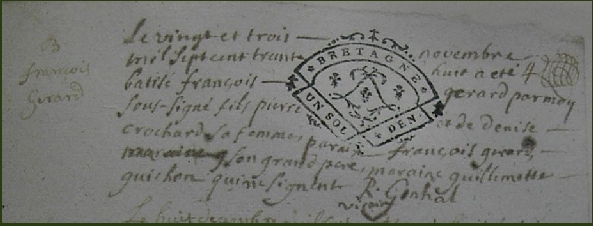 B
françois
Gerard
Le vingt et trois novembre
mil sept cent trante huit a eté
batisé françois gerard par moy
sous-signé fils pierre et de denise
crochard sa femme, parain françois gerard,
son grand pere, maraine guillemette
guichon qui ne signent
vicaire
Le huit decembre
BRETAGNE
UN SOL
DEN.